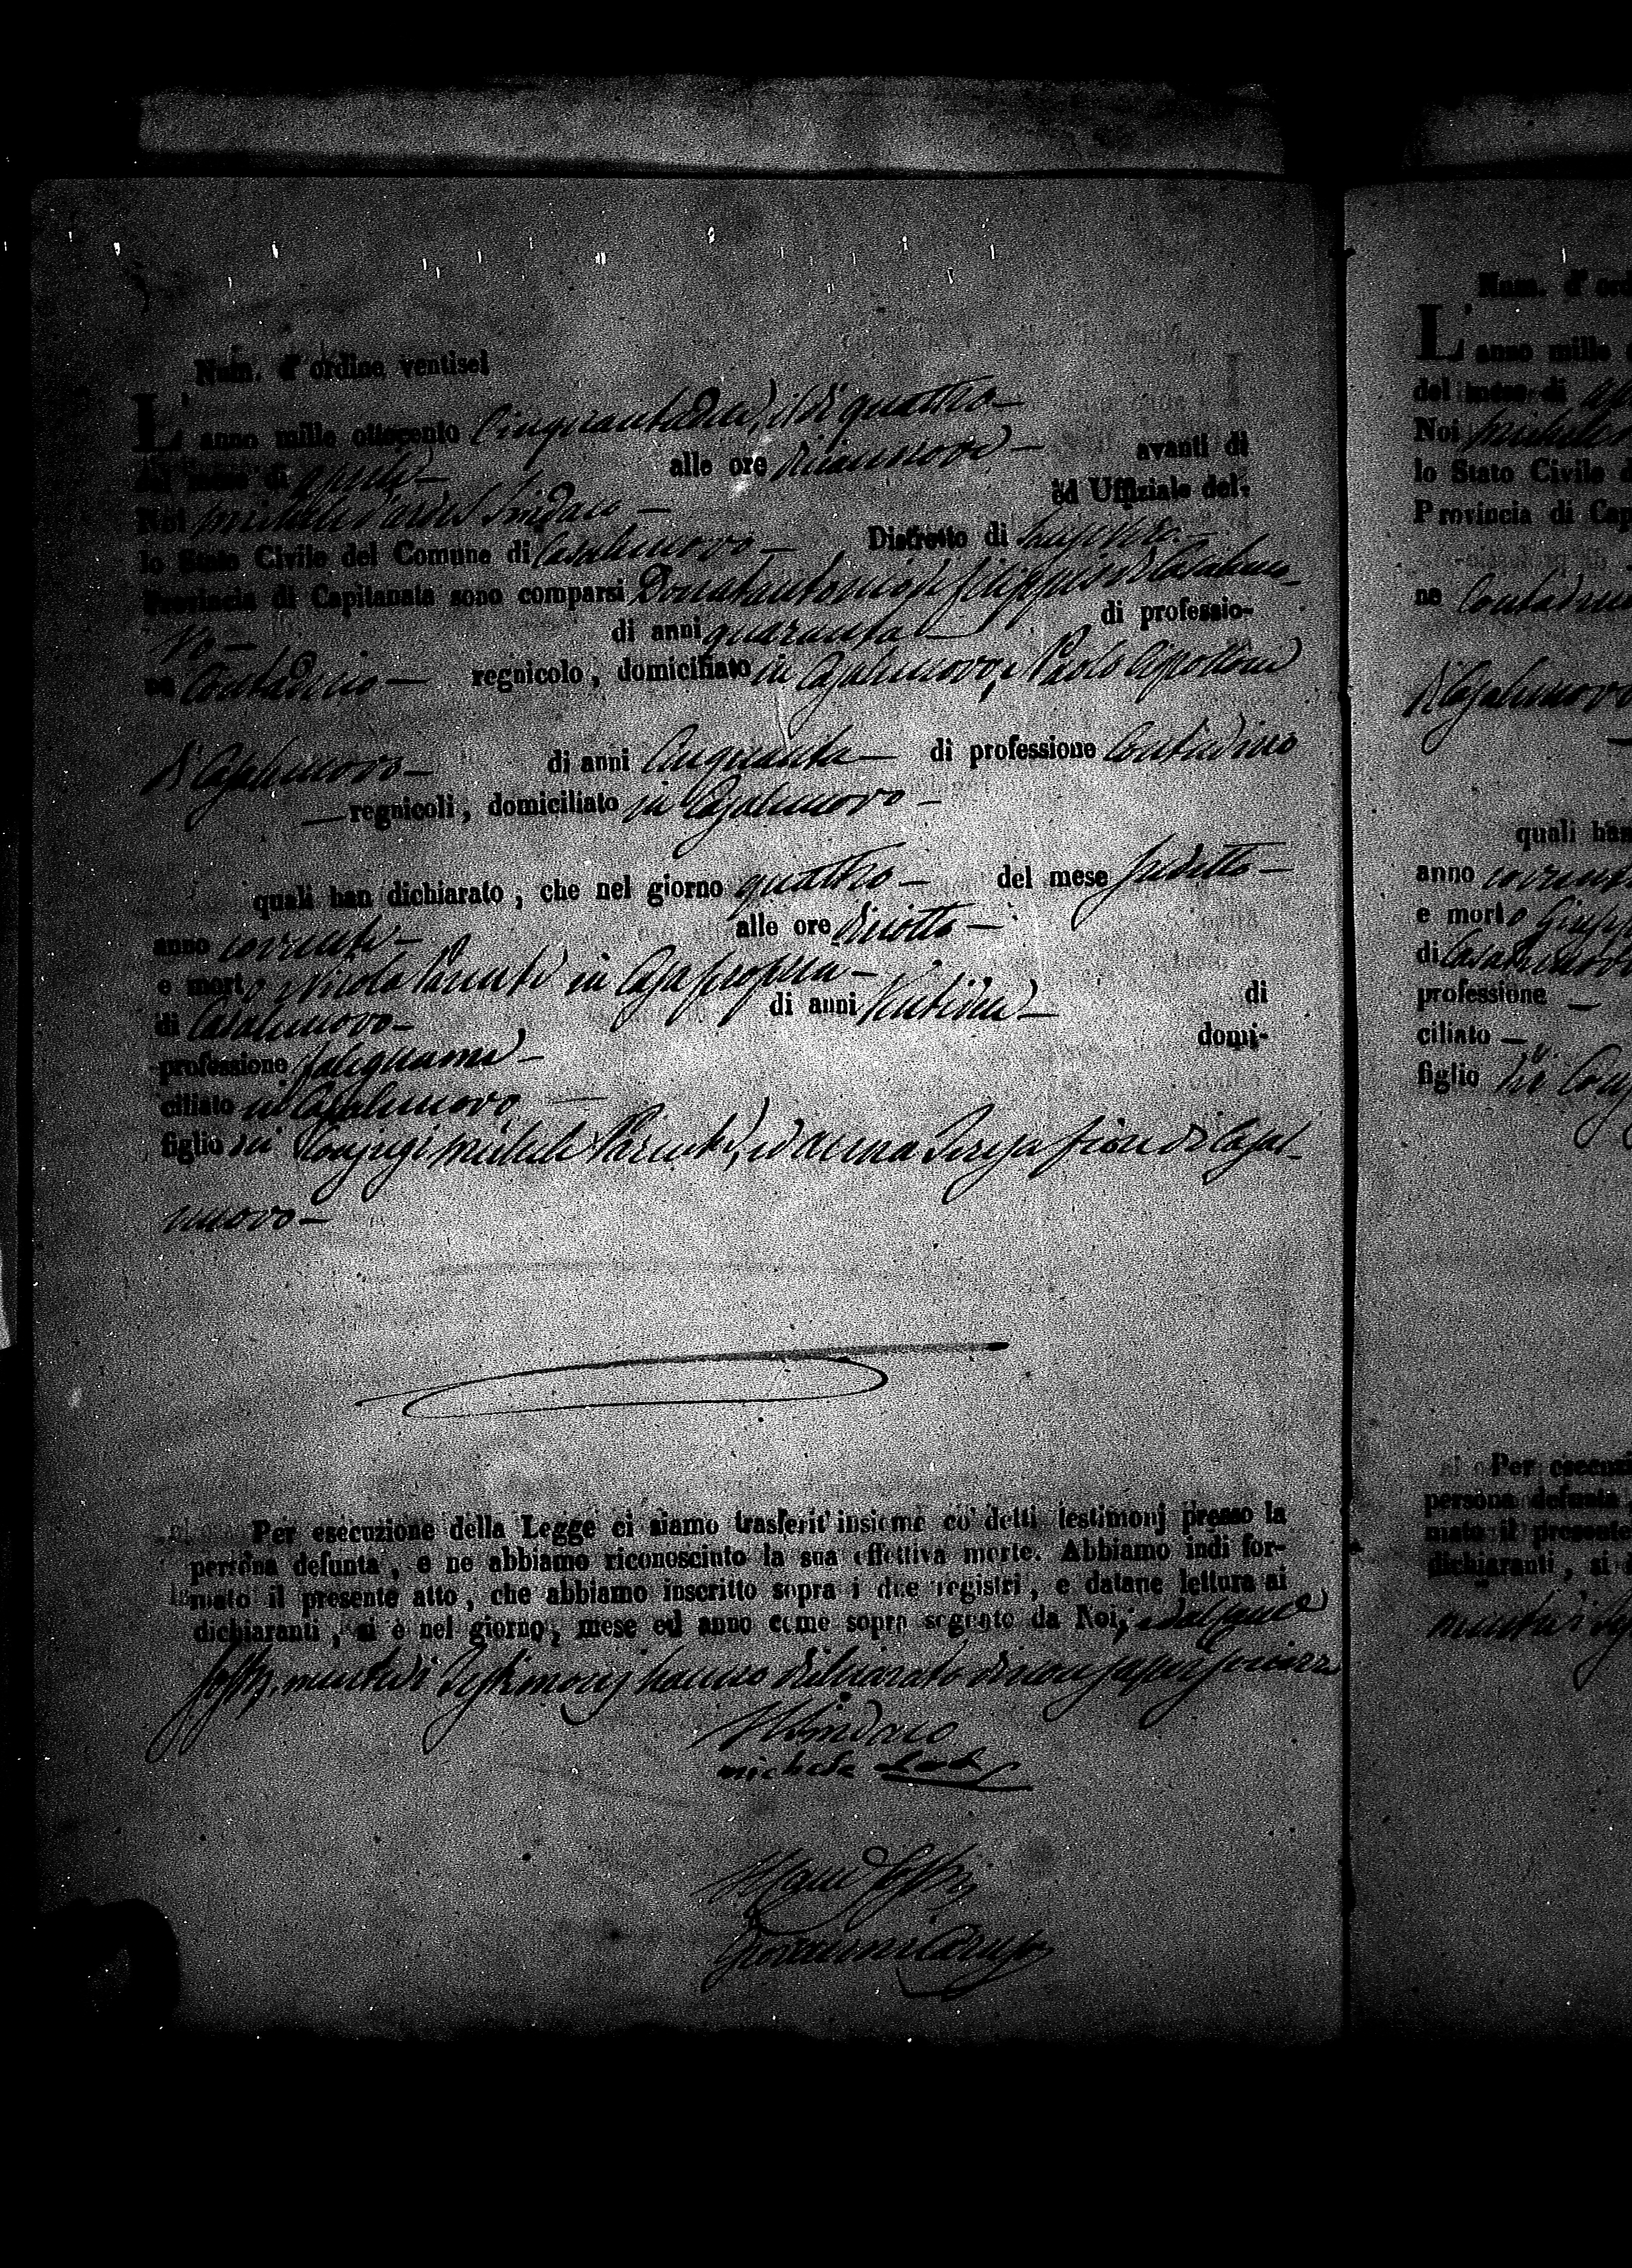 Num. d'ordine ventisei
L'anno mille ottocento Cinquantadue, il dì quattro —
del mese di aprile — alle ore diecennove — avanti di
Noi Michele Iardel Sindaco — ed Uffiziale del-
lo Stato Civile del Comune di Casalnuovo — , Distretto di
Provincia di Capitanata sono comparsi Donatantonio de Filippis di Casalnuo-
vo — di anni quaranta — di professio-
ne Contadino — regnicolo, domiciliato in Casalnuovo, e Paolo Cipollone
di Casalnuovo — di anni Cinquanta — di professione Contadino
— regnicoli, domiciliato in Casalnuovo —
quali han dichiarato, che nel giorno quattro — del mese sudetto —
anno corrente — alle ore diciotto —
e morto Nicola Parente in Casa propria —
di Casalnuovo — , di anni Ventidue — di
professione falegname — domi-
ciliato in Casalnuovo —
figlio di Conjugi Michele Parente, ed Anna Teresa Fiore di Casal-
nuovo —
Per esecuzione della Legge ci siamo trasferit' insieme co' detti testimonj presso la
persona defunta, e ne abbiamo riconosciuto la sua effettiva morte. Abbiamo indi for-
mato il presente atto, che abbiamo inscritto sopra i due registri, e datane lettura ai
dichiaranti, si è nel giorno, mese ed anno come sopra segnato da Noi,
testimonj hanno dichiarato di non saper scrivere
Il Sindaco
Michele
Giovanni Caruso
Num. d'ord
L'anno mille
del mese di
Noi Michele
lo Stato Civile d
Provincia di Cap
ne Contadino
di Casalnuovo
quali han
anno corrente
e morto Giusep
di Casalnuovo
professione —
ciliato —
figlio
Per esecuzi
persona defunta,
mato il presente
dichiaranti, si è